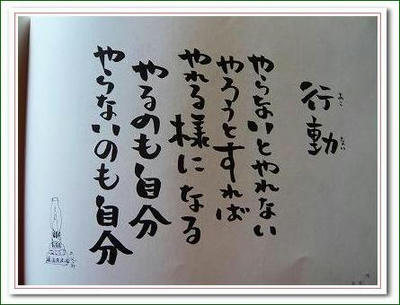 行動
やらないとやれない
やろうとすれば
やれる様になる
やるのも自分
やらないのも自分